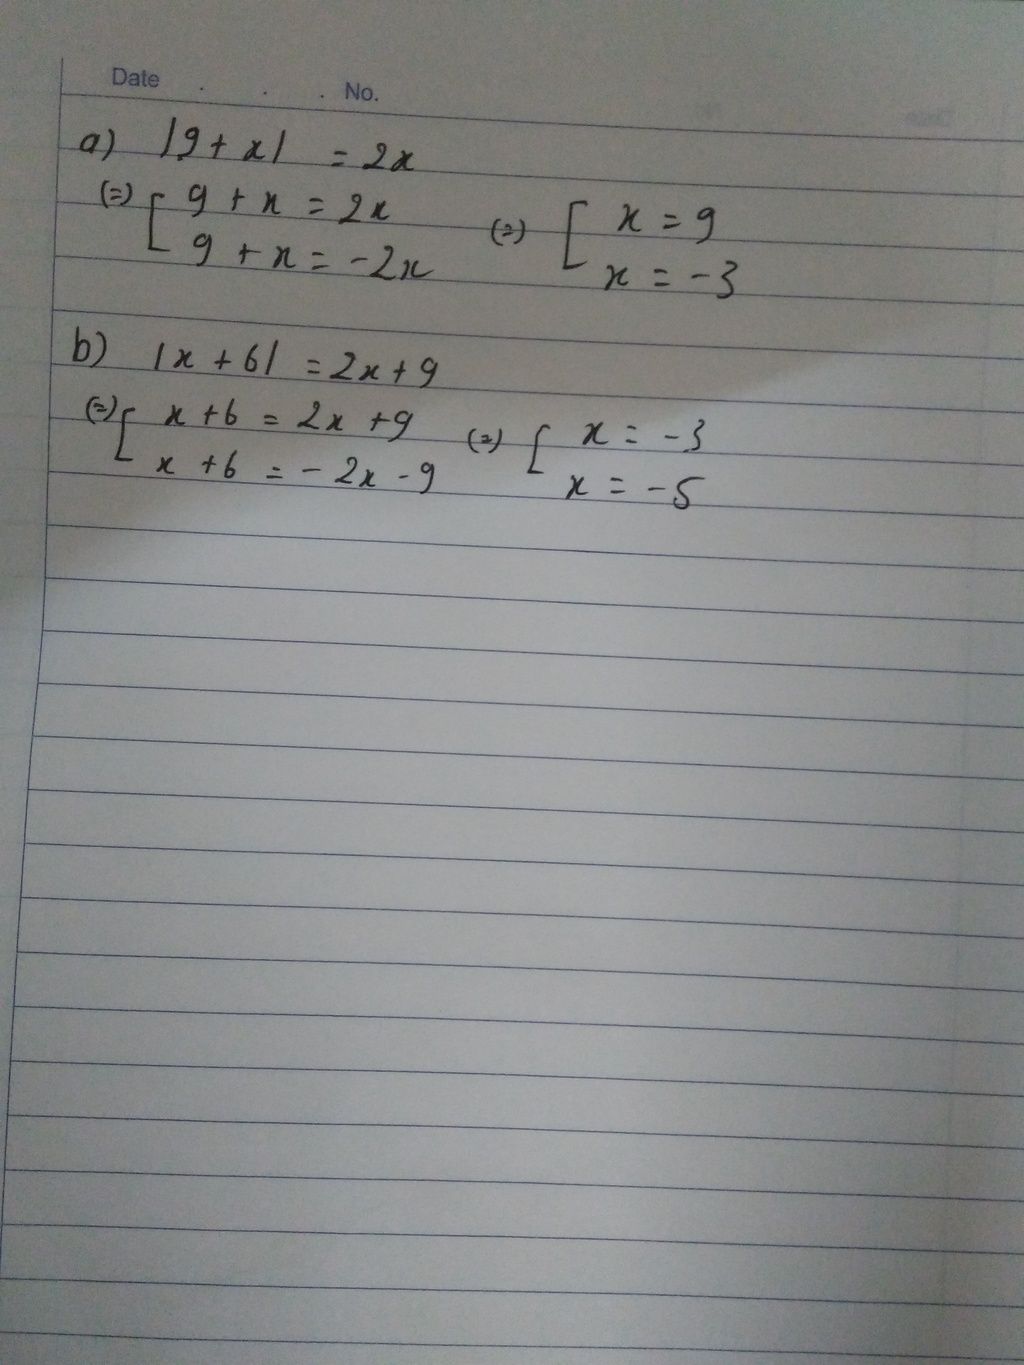 Date . . . No.
a) |9 + x| = 2x
(=) [ 9 + x = 2x (=) [ x = 9
9 + x = -2x x = -3
b) |x + 6| = 2x + 9
(=) [ x + 6 = 2x + 9 (=) [ x = -3
x + 6 = - 2x - 9 x = -5